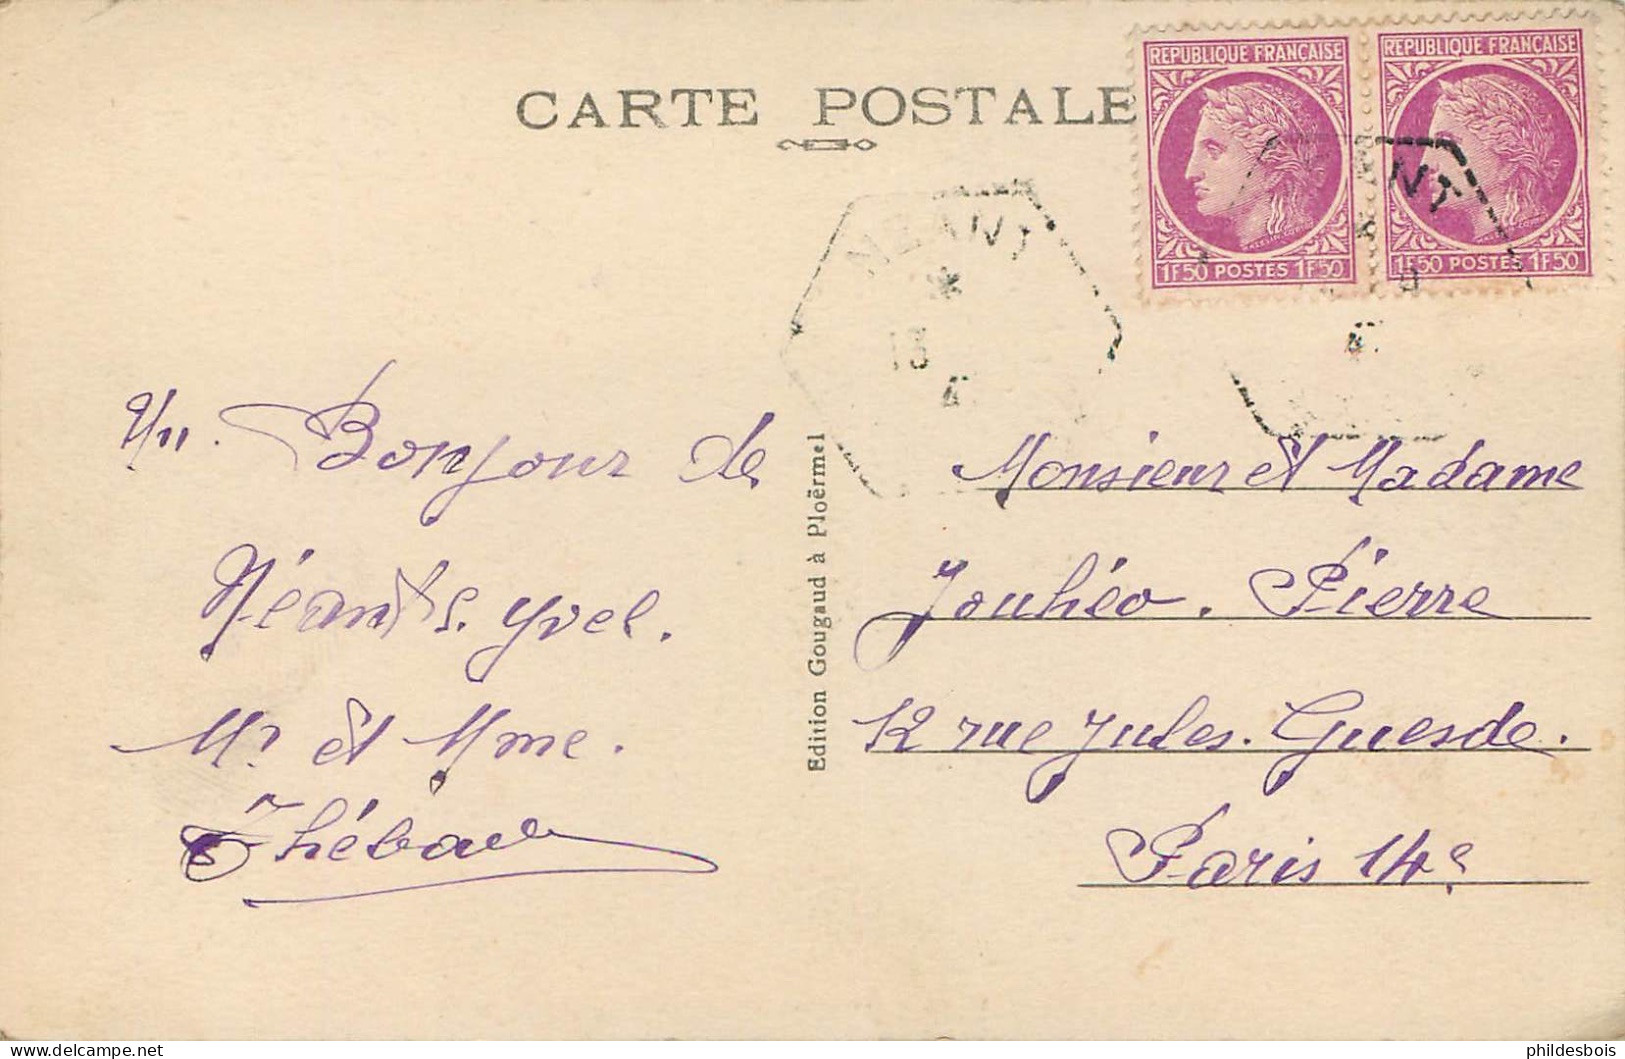 CARTE POSTALE
REPUBLIQUE FRANÇAISE
1F50 POSTES 1F50
REPUBLIQUE FRANÇAISE
1F50 POSTES 1F50
NEANT
13
4
NT
4
Un Bonjour de
Néant s. yvel.
Mr et Mme.
Thébau
Edition Gougaud à Ploërmel
Monsieur et Madame
Jouhéo. Pierre
12 rue Jules. Guesde.
Paris 14e
phildesbois